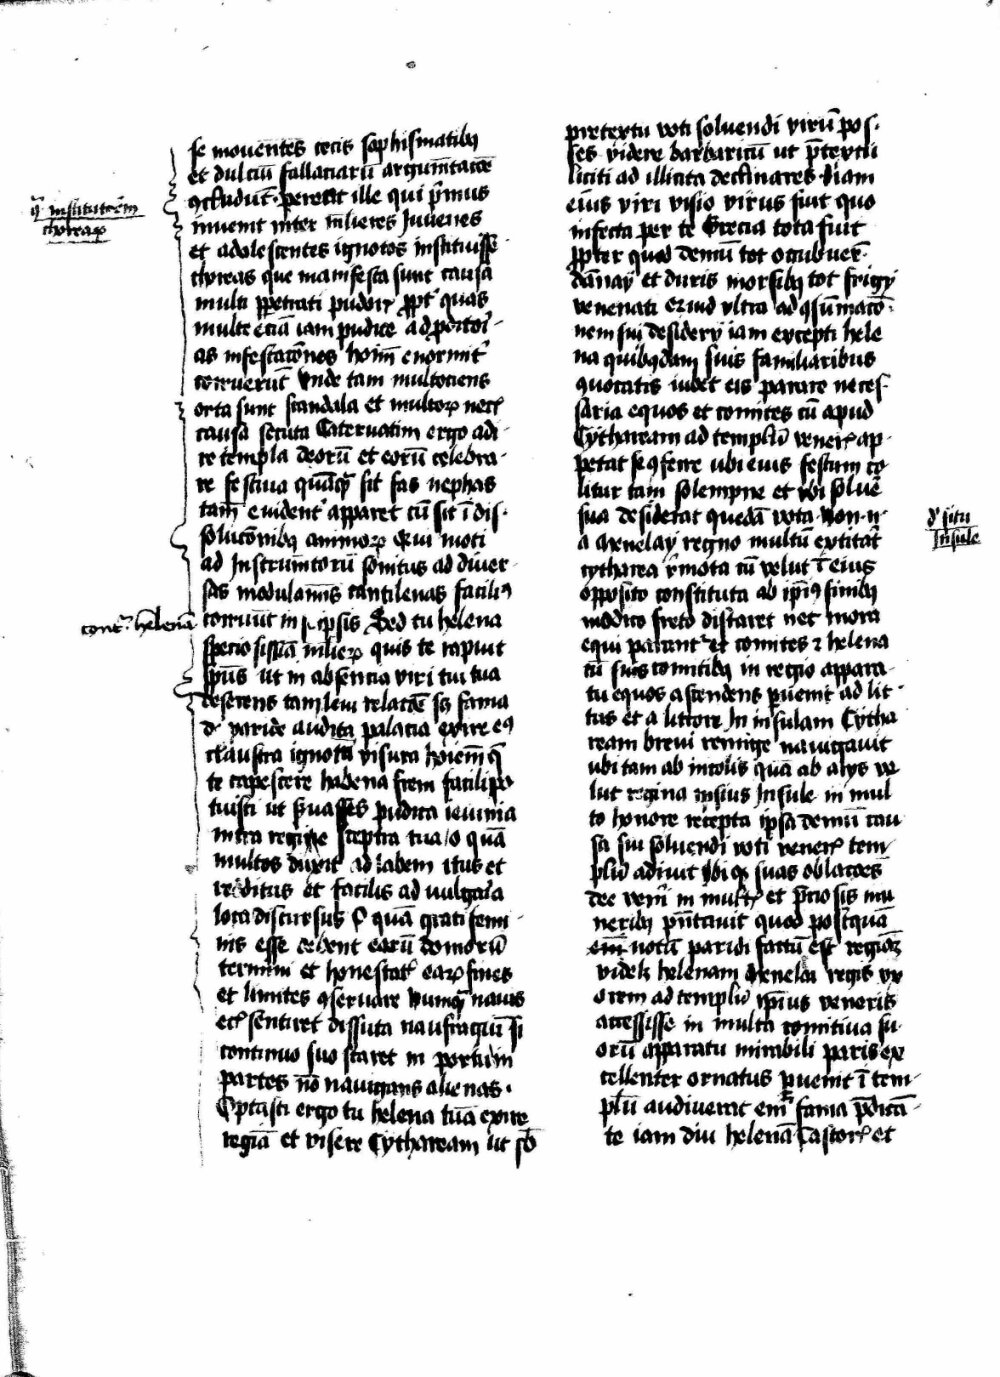 se mouentes cecis sophismatibꝫ
et dulciū fallaciarū argumētacōē
ꝯcludūt · pereat ille qui p̄mus
inuenit inter mulieres Juuenes
et adolescentes ignotos instituisse
choreas que manifesta sunt causa
multi ꝑpetrati pudoris ꝓpt̕ quas
multe eciā iam pudice ad ꝑditori-
as infestacōnes hoīm enormit̕
corruerūt Vnde tam multociens
orta sunt scandala et multoꝝ necꝭ
causa secuta Cateruatim ergo adi-
re templa deorū et eorū celebra-
re festiua quāqꝫ sit fas nephas
tam̄ euident̕ apparet cū sit ī dis-
solucōnibꝫ animoꝝ Qui moti
ad Instrumētorū sonitus ad diuer-
sas modulamīs cantilenas faciliꝰ
corruūt in se ipsis Sed tu helena
speciosissīa mulieꝝ quis te rapuit
sp̄us ut in absencia viri tui tua
deserens tam leui relacōe sꝫ fama
d̕ paride audita palacia exire eiꝰ
claustra ignotū visura hoīem qꝫ
te capescere habena freni facilis po-
tuisti ut seruasses pudica ieiunia
intra regine sceptra tua o quā
multos duxit ad labem itus et
reditus et facilis ad uulgaria
loca discursus O quā grati femi-
nis esse debent earū domorū
termini et honestatꝭ eaꝝ fines
et limites ꝯseruare Nunqꝫ nauis
ecꝭ sentiret dissuta naufragiū si
continuo suo staret in portu in
partes nō nauigans alienas ·
Optasti ergo tu helena tuā exire
regiā et visere Cythaream ut sb̄
q̄ institutorem
choreaꝝ
cont᷑ helenā
pretextu voti soluendi virū pos-
ses videre barbaricū ut p̄textu
liciti ad illicita declinares · Nam
eius viri visio virus fuit quo
infecta per te Grecia tota fuit
ꝓpter quod demū tot occubuer̄
dānay et duris morsibꝫ tot frigy
venenati
nem sui desidery iam excepti hele
na quibꝫdam suis familiaribus
quocatis iubet eis parare neces-
saria equos et comites cū apud
Cythaream ad templū venerꝭ ap-
petat se ꝯferre ubi eius festum co
litur tam solempne et ubi soluē
sua desiderat quedā vota · Non .n.
a Menelay regno multū extitāt
cytharea r̄mota cū velut ī eius
opposito constituta ab ip̄iꝰ finibꝫ
modico freto distaret nec mora
equi parant᷑ et comites ⁊ helena
cū suis comitibꝫ in regio appara-
tu equos ascendens ꝑuenit ad lit-
tus et a littore In insulam Cytha
ream breui remige nauigauit
ubi tam ab incolis quā ab alys ve
lut regina insius Insule in mul
to honore recepta ipsa demū cau
sa sui soluendi voti venerꝭ tem
plū adiuit Ibi qꝫ suas oblacōēs
dee veneri in multꝭ et p̄ciosis mu
neribꝫ p̄ntauit quod postquā
em̄ notū paridi factū est regiāꝫ
videlꝫ helenam Menelai regis vx
orem ad templū ip̄ius veneris
accessisse in multa comitiua su-
orū apparatu mirabili paris ex
cellenter ornatus ꝑuenit ī tem-
plū audiuerat em̄ fama p̄dicā-
te iam diu helenā Castorꝭ et
d̕ situ
Insule